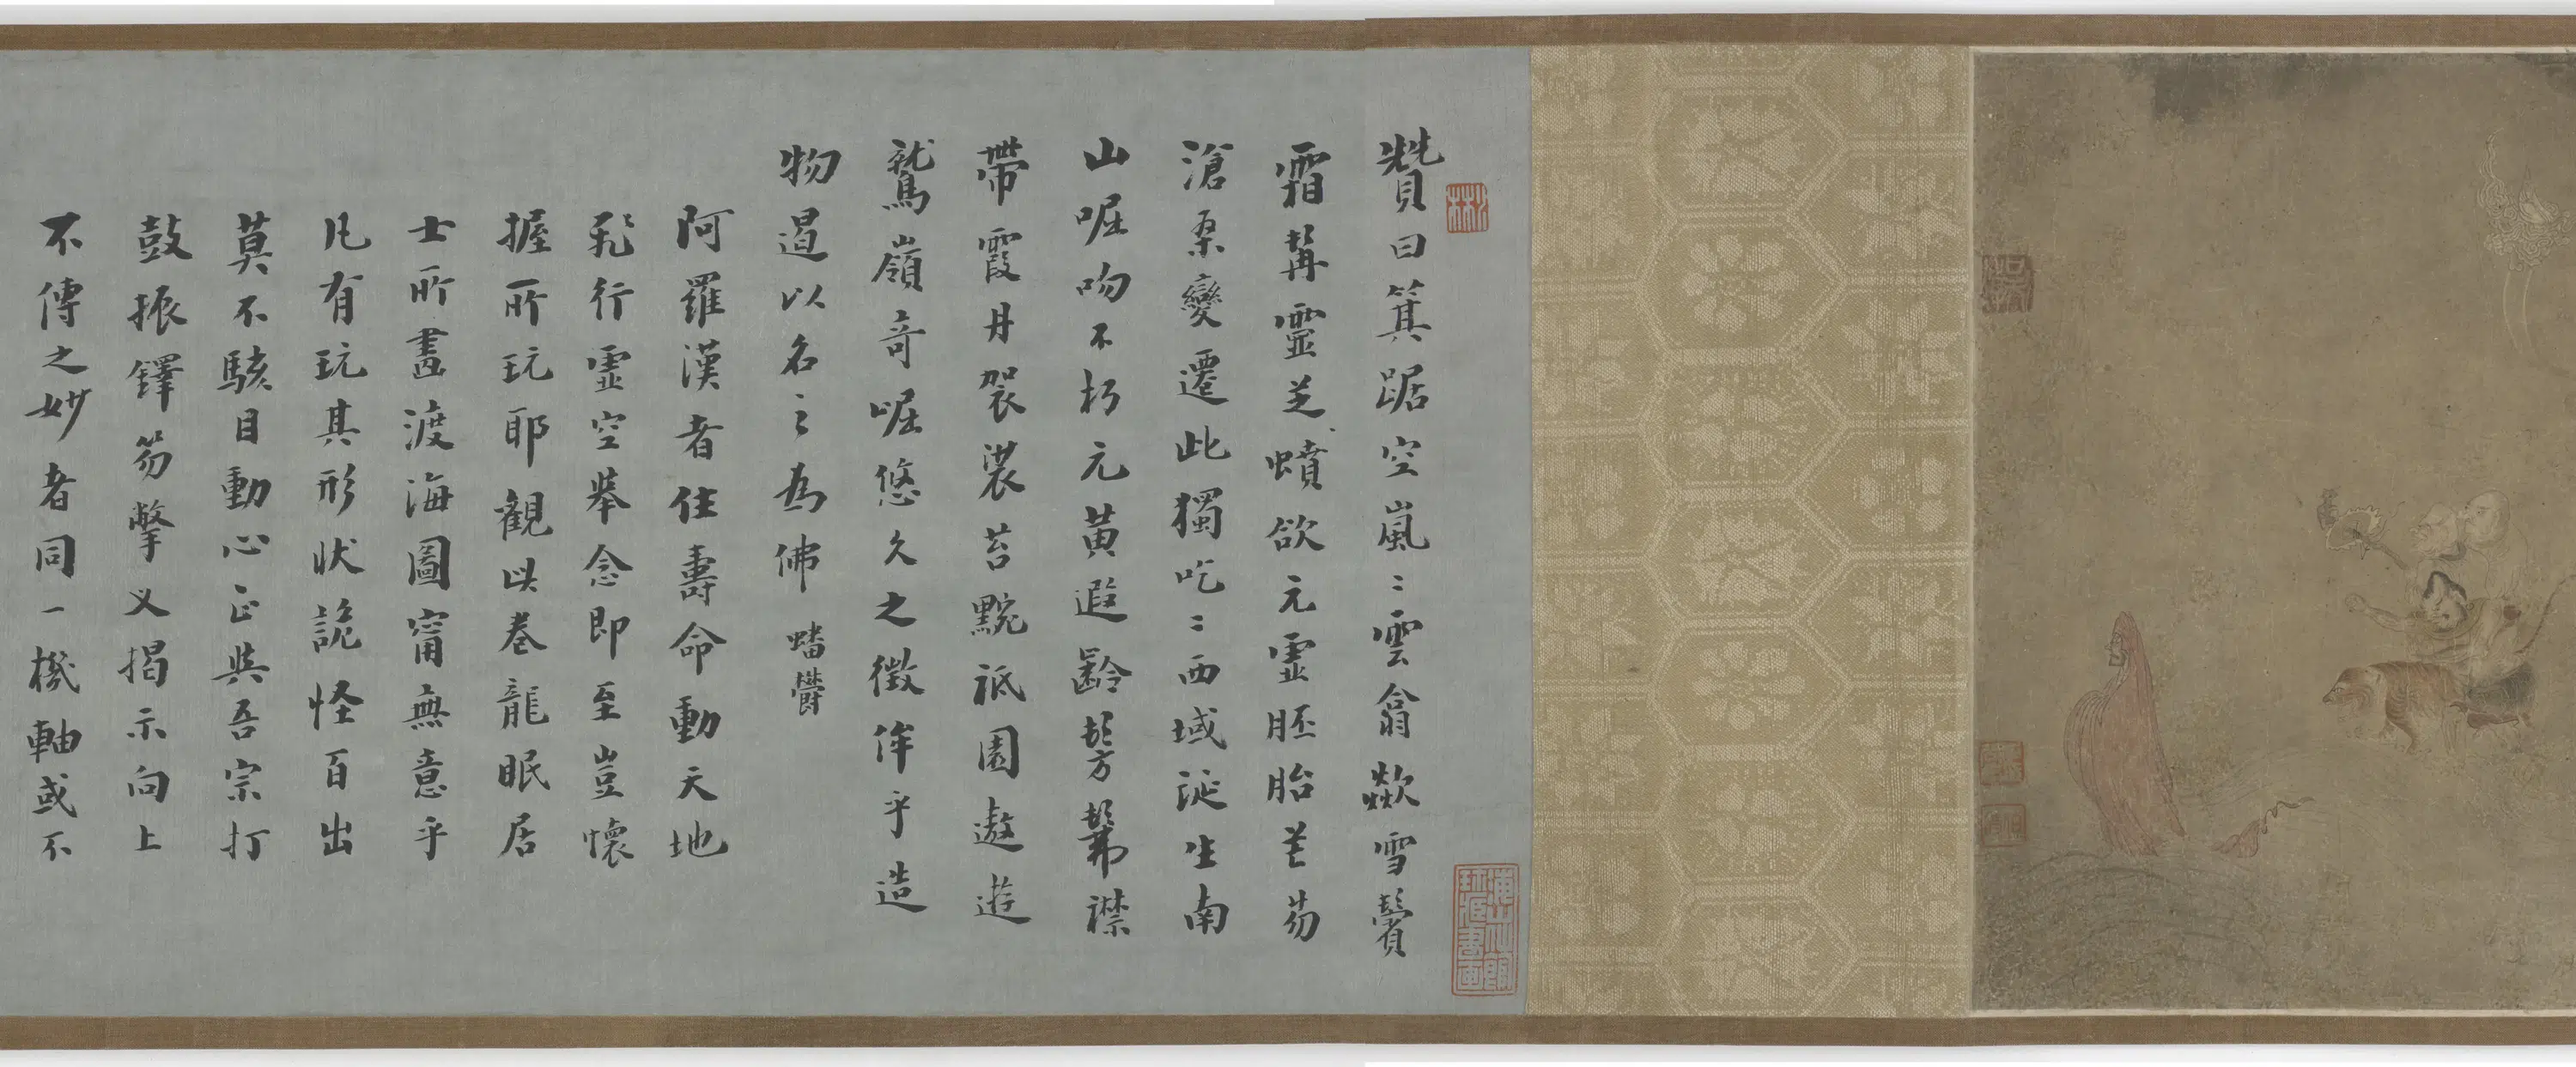 贊曰箕踞空嵐〻雲翕歘雪鬢
霜髯靈芝蟦欲元虛胚胎芒芴
滄桑變遷此獨吃〻西域誕生南
山喔吻不朽元黄遐齡髣髴襟
帶霞月袈裟苔黦祇園遨遊
鷲嶺奇崛悠久之徵侔乎造
物遑以名〻為佛 蟠鬱
阿羅漢者住壽命動天地
飛行虛空舉念即至豈懷
握所玩耶觀此卷龍眠居
士所畫渡海圖甯無意乎
凡有玩其形狀詭怪百出
莫不駭目動心正與吾宗打
鼓振鐸芴擎义揭示向上
不傳之妙者同一機軸或不